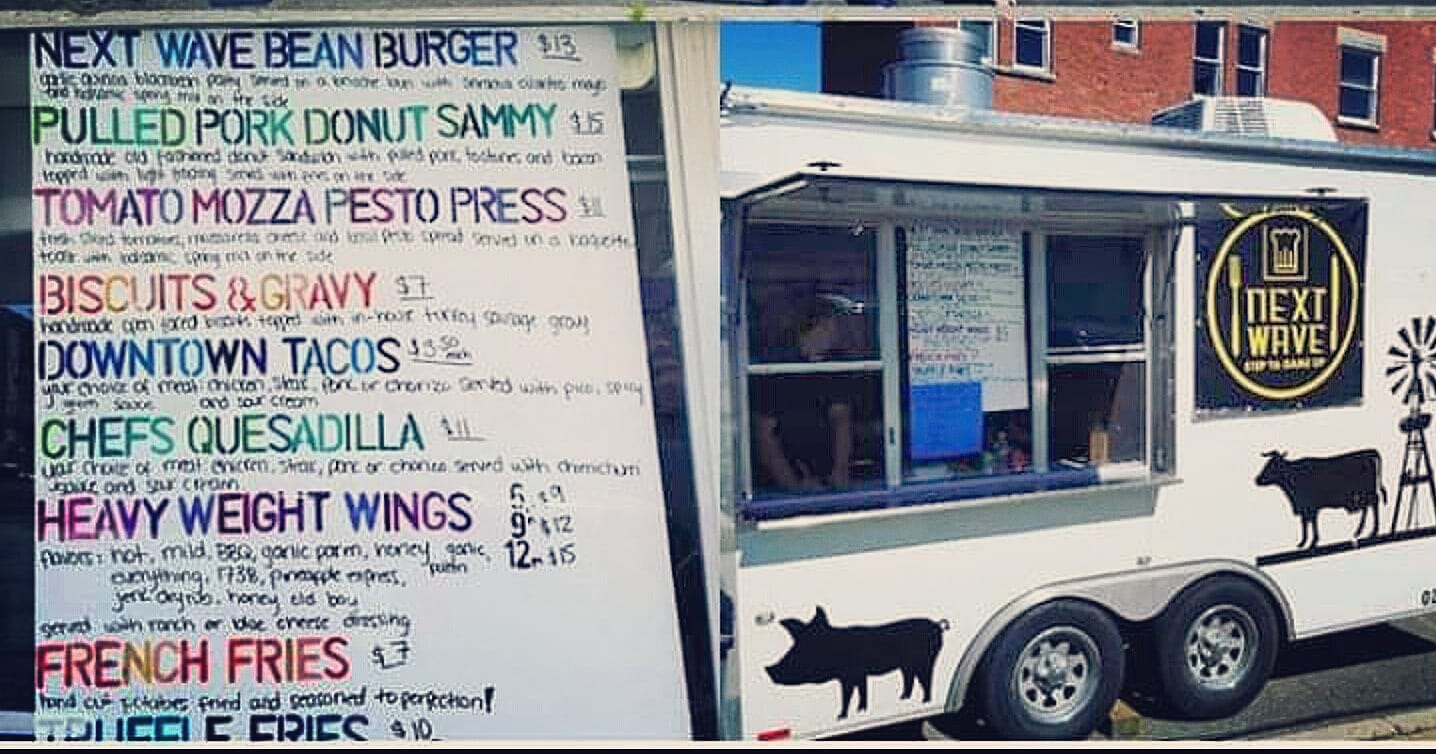 NEXT WAVE BEAN BURGER $13
garlic quinoa blackbean patty served on a brioche bun with cilantro mayo
and balsamic spring mix on the side
PULLED PORK DONUT SAMMY $15
handmade old fashioned donut sandwich with pulled pork, and bacon
topped with served with fries on the side
TOMATO MOZZA PESTO PRESS $11
fresh sliced tomatoes, mozzarella cheese and pesto spread served on a baguette
with balsamic spring mix on the side
BISCUITS & GRAVY $7
handmade open faced biscuits topped with in-house turkey sausage gravy
DOWNTOWN TACOS $3.50 each
your choice of meat chicken, steak, pork or chorizo served with pico, spicy
green sauce and sour cream
CHEFS QUESADILLA $11
your choice of meat chicken, steak, pork or chorizo served with
and sour cream
HEAVY WEIGHT WINGS 5 $9
9 $12
flavors: hot, mild, BBQ, garlic parm, honey garlic, 12 $15
everything, 1738, pineapple express,
jerk dry rub, honey old bay
served with ranch or bleu cheese dressing
FRENCH FRIES $7
hand cut potatoes fried and seasoned to perfection!
TRUFFLE FRIES $10
NEXT
WAVE